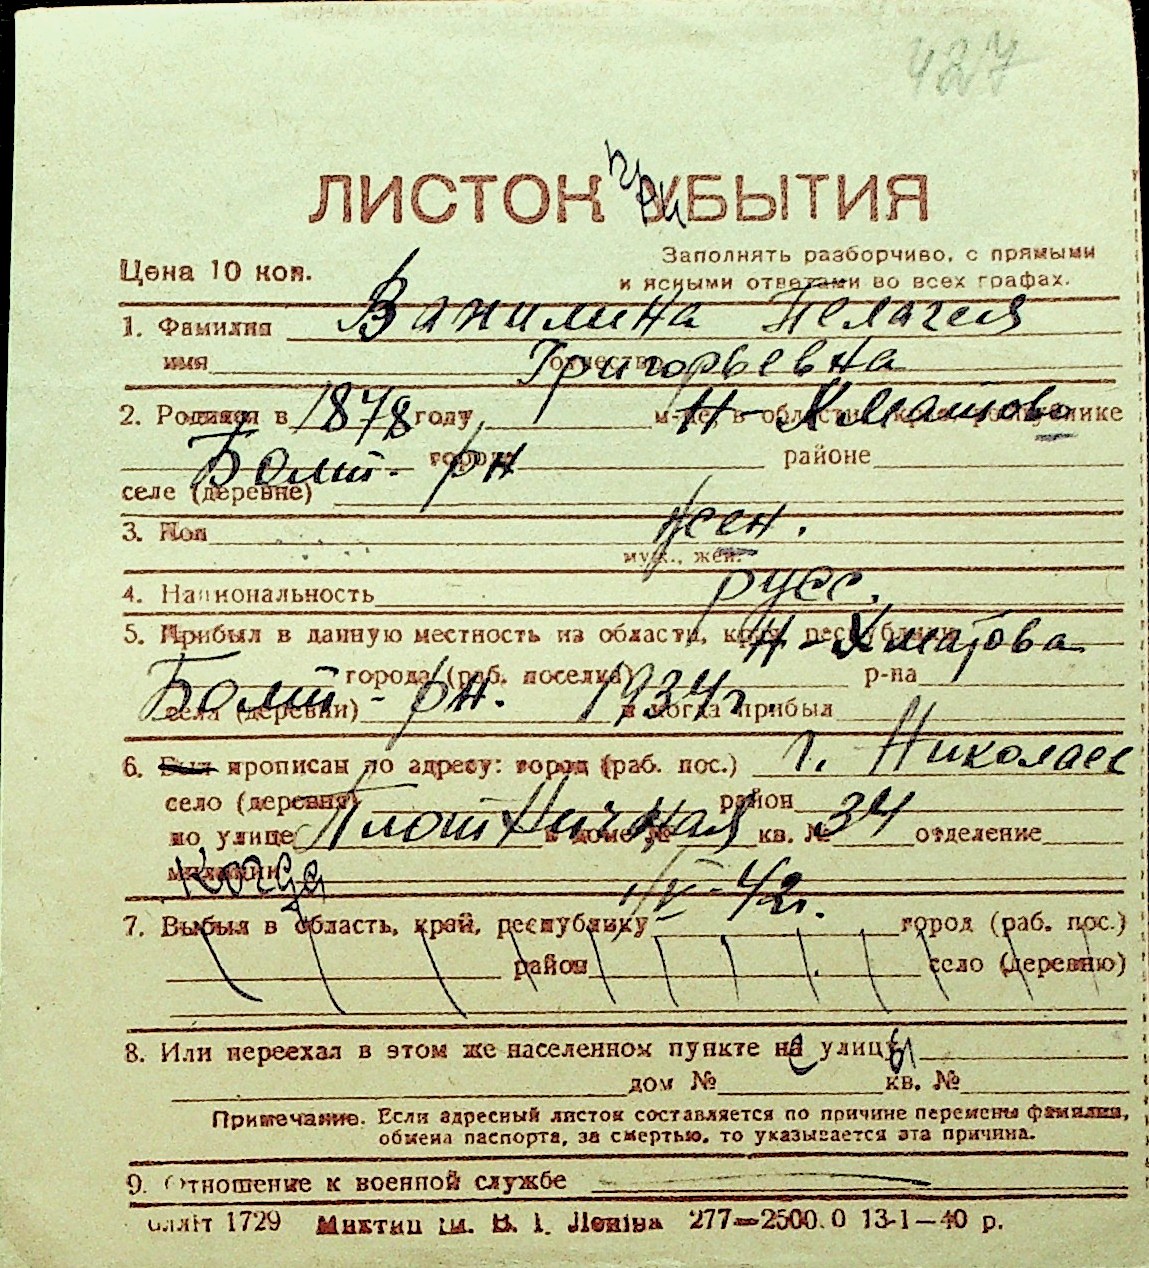 427
ЛИСТОК при УБЫТИЯ
Цена 10 коп.
Заполнять разборчиво, с прямыми
и ясными ответами во всех графах.
1. Фамилия Ванилина Пелагея
имя отчество Григорьевна
2. Родился в 1878 году м-це, в области, крае, республике Н-Хматово
Болт- рн города районе
селе (деревне)
3. Пол жен.
муж., жен.
4. Национальность русс.
5. Прибыл в данную местность из области, края, республики Н-Хматова
Болт- рн. города (раб. поселка) р-на
села (деревни) 1934 г. и когда прибыл
6. Был прописан по адресу: город (раб. пос.) г. Николаев
село (деревня) район
по улице Плотничная в доме № кв. № 34 отделение
милиции Когда IV-42г.
7. Выбыл в область, край, республику город (раб. пос.)
район село (деревню)
8. Или переехал в этом же населенном пункте на с улицу ы
дом № кв. №
Примечание. Если адресный листок составляется по причине перемены фамилии,
обмена паспорта, за смертью, то указывается эта причина.
9. Отношение к военной службе
1729 В. І. Леніна 277—2500.0 13-1—40 р.